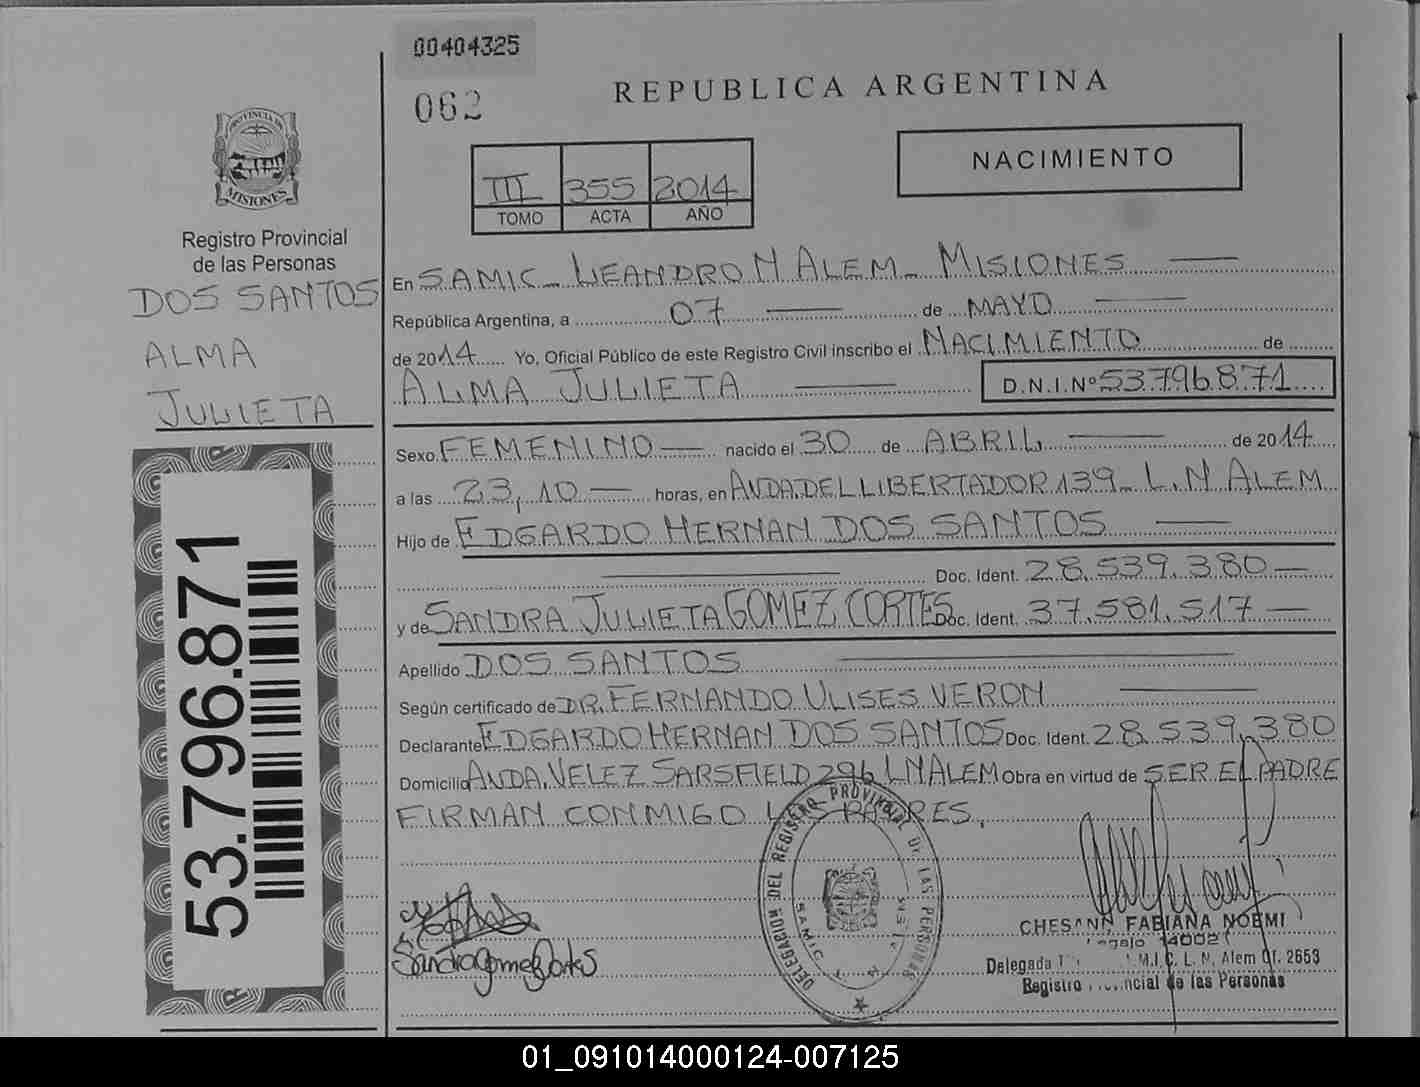 00404325
062
REPUBLICA ARGENTINA
NACIMIENTO
III 355 2014
TOMO ACTA AÑO
PROVINCIA DE
MISIONES
Registro Provincial
de las Personas
DOS SANTOS
ALMA
JULIETA
53.796.871
En SAMIC - LEANDRO N ALEM - MISIONES
República Argentina, a 07 de MAYO
de 2014 Yo, Oficial Público de este Registro Civil inscribo el NACIMIENTO de
ALMA JULIETA D.N.I.Nº 53.796.871
Sexo FEMENINO nacido el 30 de ABRIL de 2014
a las 23,10 horas, en AVDA. DEL LIBERTADOR 139 - L.N ALEM
Hijo de EDGARDO HERNAN DOS SANTOS
Doc. Ident. 28.539.380
y de SANDRA JULIETA GOMEZ CORTES Doc. Ident. 37.581.517
Apellido DOS SANTOS
Según certificado de DR. FERNANDO ULISES VERON
Declarante EDGARDO HERNAN DOS SANTOS Doc. Ident. 28.539.380
Domicilio AVDA. VELEZ SARSFIELD 296 LN ALEM Obra en virtud de SER EL PADRE
FIRMAN CONMIGO LOS PADRES,
DELEGACION DEL REGISTRO PROVINCIAL DE LAS PERSONAS
SAMIC L. N. ALEM
Sandra Gomez Cortes
CHESANN FABIANA NOEMI
Legajo 14002
Delegada L. N. Alem Of. 2653
Registro Provincial de las Personas
01_091014000124-007125